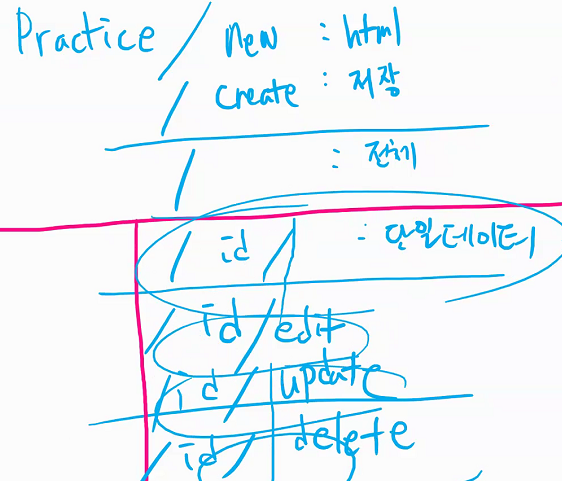 Practice / new : html
/ create : 저장
/ : 전체
/ id / : 단일데이터
/ id / edit
/ id / update
/ id / delete